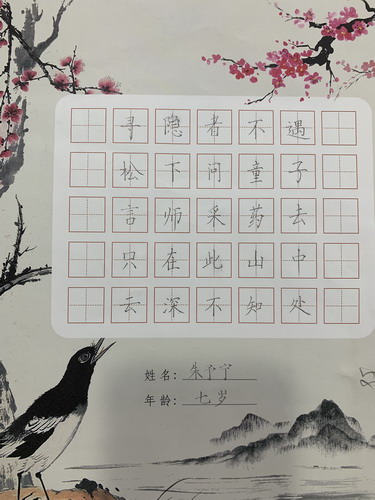 寻隐者不遇
松下问童子
言师采药去
只在此山中
云深不知处
姓名：朱予宁
年龄：七岁